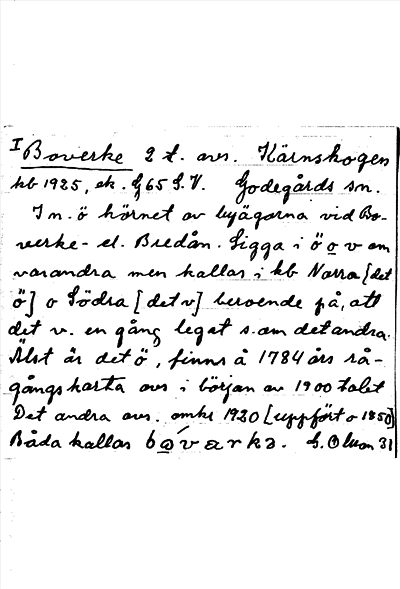 I Boverke 2 t. avs. Kärnskogen
kb 1925, ek. G65 S.V. Godegårds sn.
I n. ö hörnet av byägorna vid Bo-
verke- el. Bredån. Ligga i ö o v om
varandra men kallas i kb Norra [det
ö] o Södra [det v] beroende på, att
det v. en gång legat s. om det andra.
Älst är det ö, finns å 1784 års rå-
gångskarta avs i början av 1900 talet
Det andra avs. omkr 1920 [uppfört o 1850]
Båda kallas bo̱varka. G. Olson 31